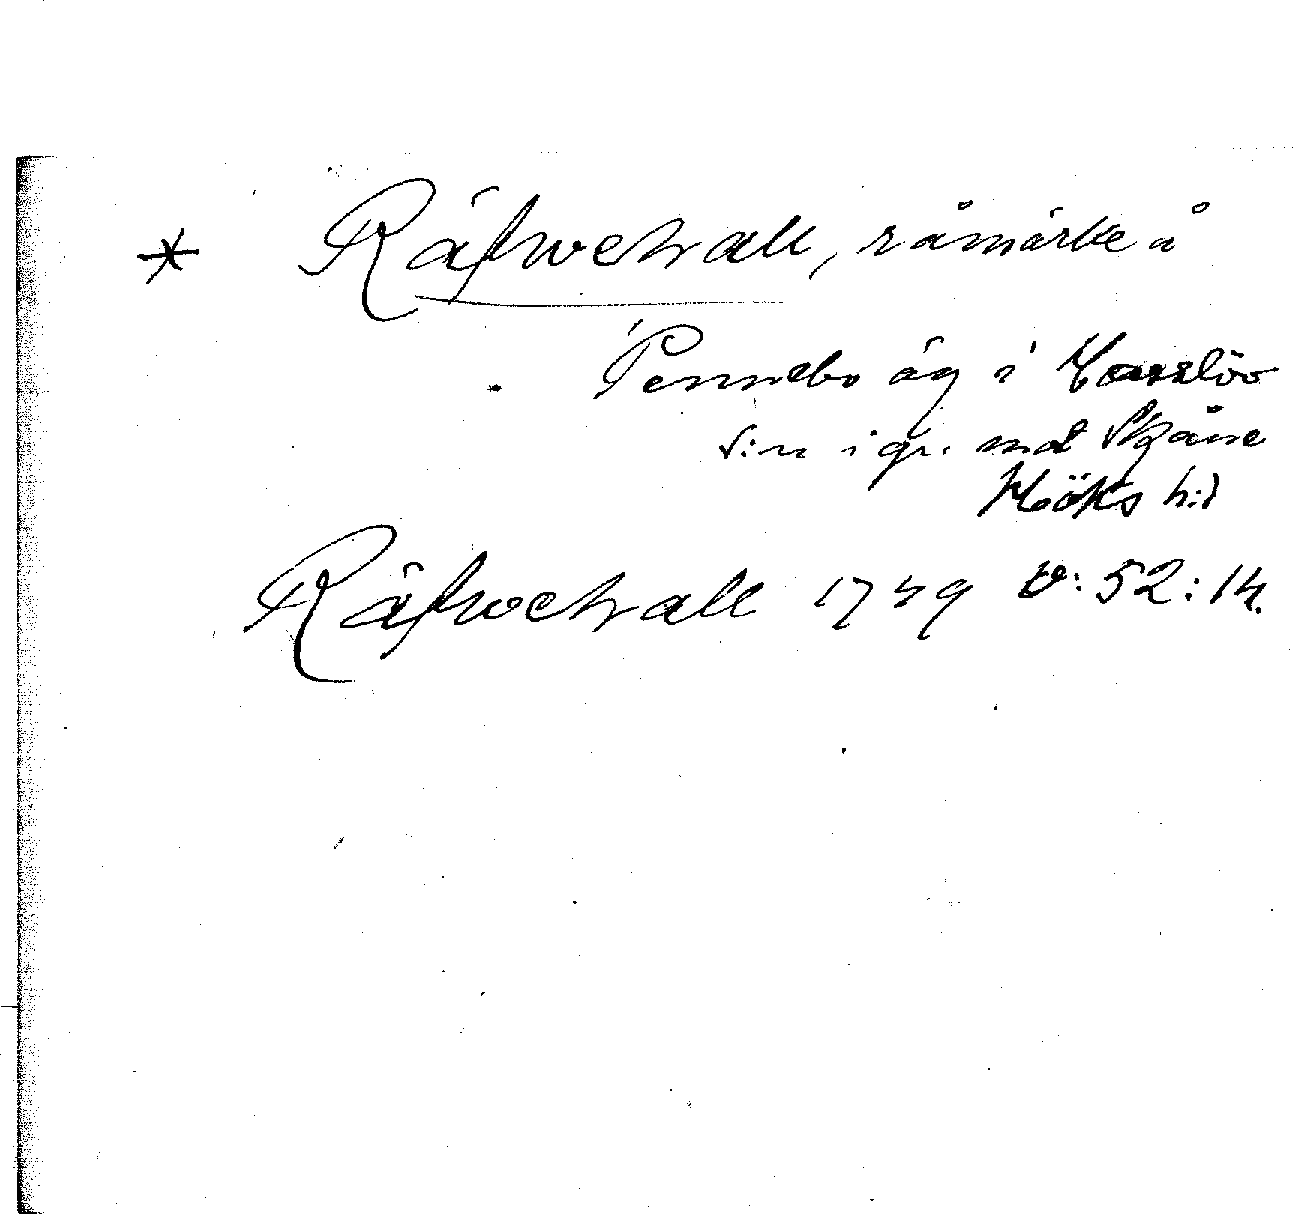 * Räfwehall, råmärke å
Pennebo äg i Hasslöv
s:n i gr. mot Skåne
Höks h:d
Räfwehall 1749 v: 52:14.